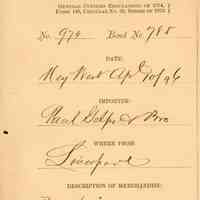 General Customs Regulations of 1874,
Form 140, Circular No. 20, Series of 1875
No. 974 Bond No. 788
DATE:
Key West Apl 10/96
IMPORTER:
& Bro
WHERE FROM
Liverpool
DESCRIPTION OF MERCHANDISE: